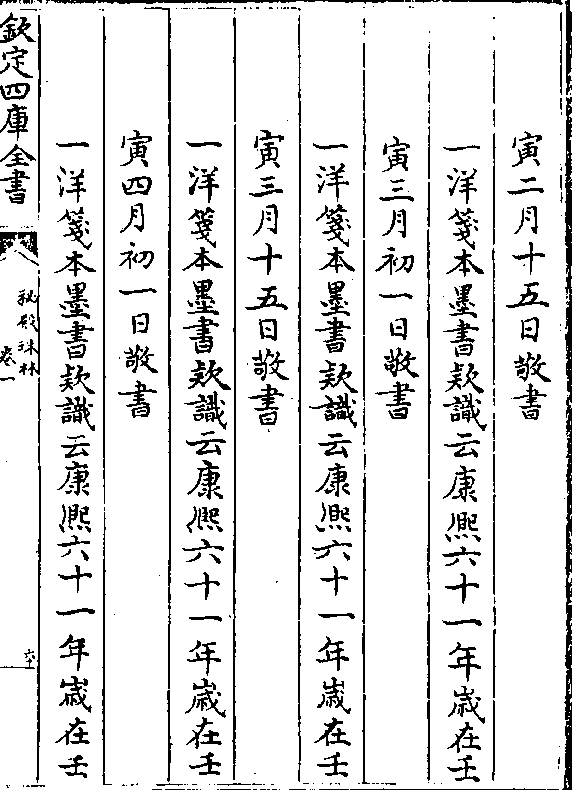 寅二月十五日敬書
一洋箋本墨書欵識云康熈六十一年歳在壬
寅三月初一日敬書
一洋箋本墨書欵識云康熈六十一年歳在壬
寅三月十五日敬書
一洋箋本墨書欵識云康熈六十一年歳在壬
寅四月初一日敬書
一洋箋本墨書欵識云康熈六十一年歳在壬
欽定四庫全書
秘殿珠林
卷一
六十